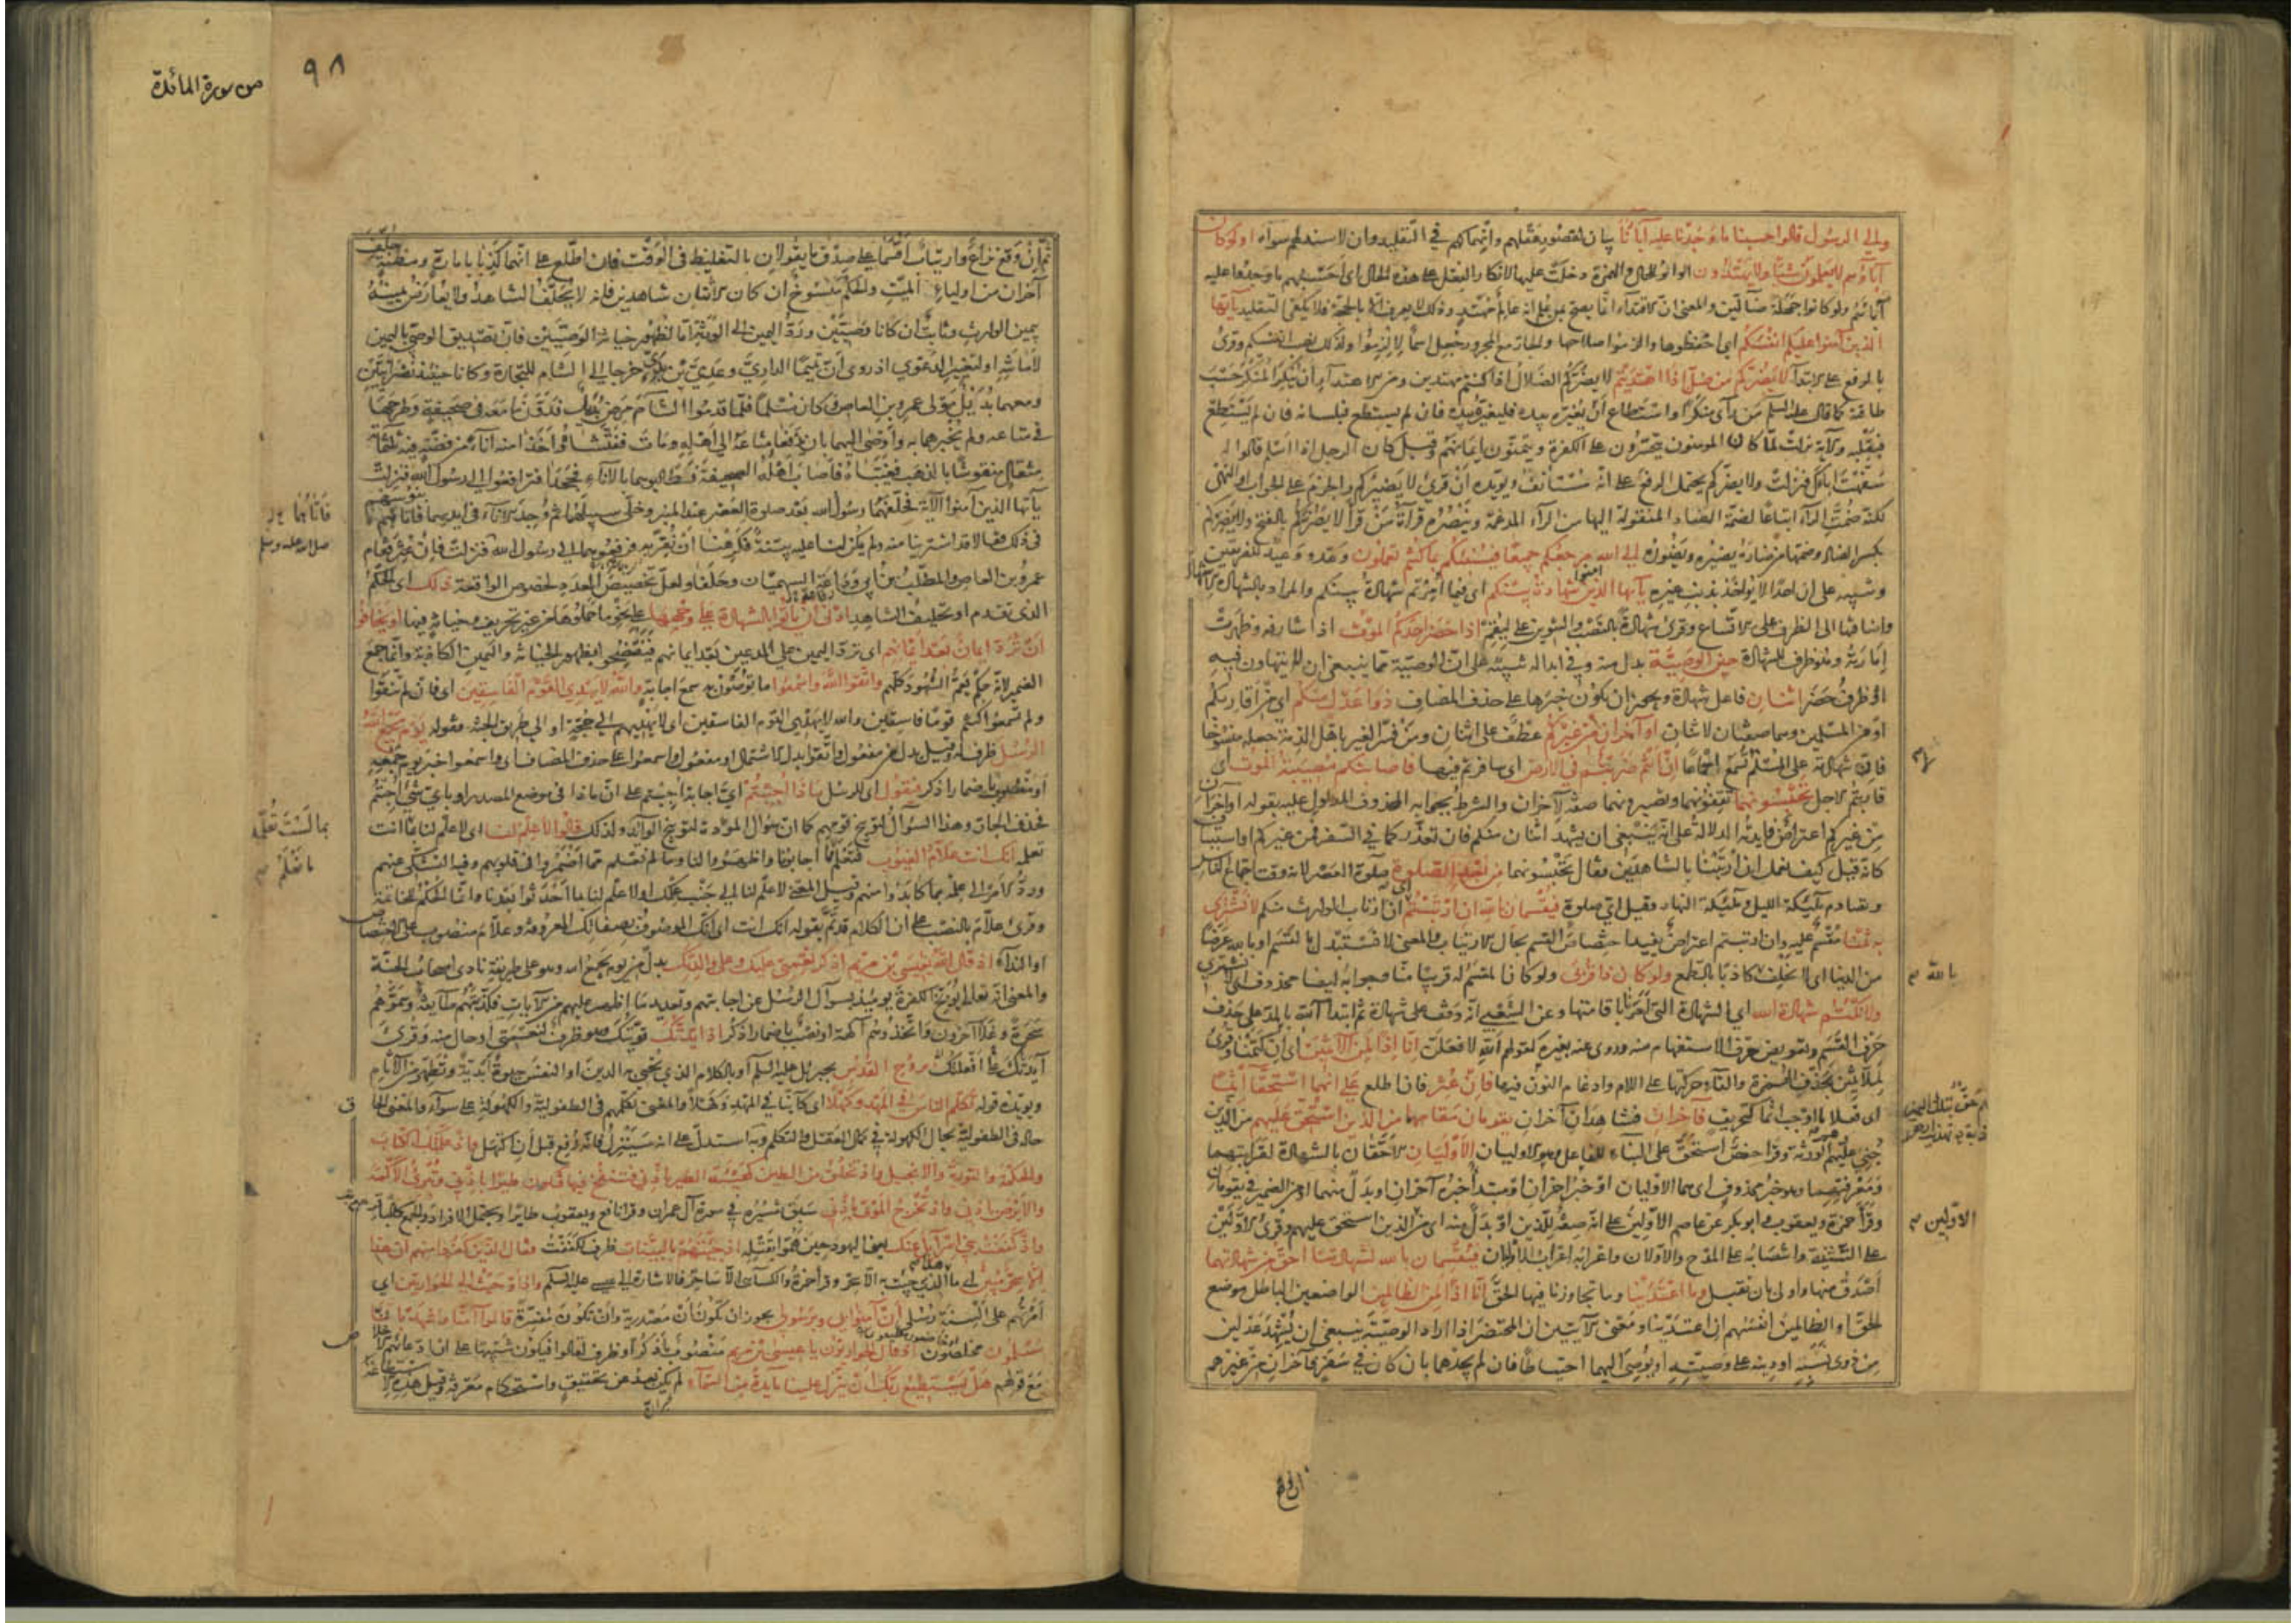 والى الرسول قالوا حسبنا ما وجدنا عليه آباءنا بيان لقصور عقلهم وانهماكهم في التقليد وان لا سند لهم سواه اولو كان
آباؤهم لا يعلمون شيئا ولا يهتدون الواو للحال والهمزة دخلت عليها لانكار الفعل على هذه الحال اي احسبهم ما وجدوا عليه
آباءهم ولو كانوا جهلة ضالين والمعنى ان الاقتداء انما يصح بمن علم انه عالم مهتد وذلك لا يعرف الا بالحجة فلا يكفي التقليد يا ايها
الذين آمنوا عليكم انفسكم اي احفظوها والزموا صلاحها والجار مع المجرور جعل اسما لالزموا ولذلك نصب انفسكم وقرئ
بالرفع على الابتداء لا يضركم من ضل اذا اهتديتم لا يضركم الضلال اذا كنتم مهتدين ومن الاهتداء ان ينكر المنكر حسب
طاقته كما قال عليه السلام من رأى منكرا واستطاع ان يغيره بيده فليغيره بيده فان لم يستطع فبلسانه فان لم يستطع
فبقلبه والآية نزلت لما كان المومنون يتحسرون على الكفرة ويتمنون ايمانهم وقيل كان الرجل اذا اسلم قالوا له
سفهت اباك فنزلت ولا يضركم يحتمل الرفع على انه مستأنف ويويده ان قرئ لا يضيركم والجزم على الجواب او النهي
لكنه ضمت الراء اتباعا لضمة الضاد المنقولة اليها من الراء المدغمة وينصره قراءة من قرأ لا يضركم بالفتح ولا يضركم
بكسر الضاد وضمها من ضاره يضيره ويضوره الى الله مرجعكم جميعا فينبئكم بما كنتم تعملون وعد ووعيد للفريقين
وتنبيه على ان احدا لا يؤاخذ بذنب غيره يا ايها الذين آمنوا شهادة بينكم اي فيما امرتم شهادة بينكم والمراد بالشهادة الاشهاد
واضافتها الى الظرف على الاتساع وقرئ شهادة بالنصب والتنوين على ليقم اذا حضر احدكم الموت اذا شارفه وظهرت
اماراته وهو ظرف للشهادة حين الوصية بدل منه وفي ابداله تنبيه على ان الوصية مما ينبغي ان لا يتهاون فيه
او ظرف حضر اثنان فاعل شهادة ويجوز ان يكون خبرها على حذف المضاف ذوا عدل منكم اي من اقاربكم
او من المسلمين وهما صفتان لاثنان او آخران من غيركم عطف على اثنان ومن فسر الغير باهل الذمة جعله منسوخا
فان شهادته على المسلم لا تسمع اجماعا ان انتم ضربتم في الارض اي سافرتم فيها فاصابتكم مصيبة الموت اي
قاربتم الاجل تحبسونهما تقفونهما وتصبرونهما صفة لآخران والشرط بجوابه المحذوف المدلول عليه بقوله او آخران
من غيركم اعتراض فايدته الدلالة على انه ينبغي ان يشهد اثنان منكم فان تعذر كما في السفر فمن غيركم او استيناف
كانه قيل كيف نعمل ان ارتبنا بالشاهدين فقال تحبسونهما من بعد الصلوة صلوة العصر لانه وقت اجتماع الناس
وتصادم ملئكة الليل وملئكة النهار وقيل اي صلوة فيقسمان بالله ان ارتبتم ان ارتاب الوارث منكم لا نشتري
به ثمنا مقسم عليه وان ارتبتم اعتراض يفيد اختصاص القسم بحال الارتياب والمعنى لا نستبدل بالقسم او بالله عرضا
بالله
من الدنيا اي لا نحلف كاذبا بالطمع ولو كان ذا قربى ولو كان المقسم له قريبا منا وجوابه ايضا محذوف اي لا نشتري
ولا نكتم شهادة الله اي الشهادة التي امرنا باقامتها وعن الشعبي انه وقف على شهادة ثم ابتدأ آلله بالمد على حذف
حرف القسم وتعويض حرف الاستفهام منه وروى عنه بغيره كقولهم الله لافعلن انا اذا لمن الآثمين اي ان كتمنا وقرئ
لملاثمين بحذف الهمزة والقاء حركتها على اللام وادغام النون فيها فان عثر فان اطلع على انهما استحقا اثما
اي فعلا ما اوجب اثما كتحريف فآخران فشاهدان آخران يقومان مقامهما من الذين استحق عليهم من الذين
جني عليهم وهم الورثة وقرأ حفص استحق على البناء للفاعل وهو الاوليان الاوليان الاحقان بالشهادة لقرابتهما
ومعرفتهما وهو خبر محذوف اي هما الاوليان او خبر آخران او مبتدأ خبره آخران او بدل منهما او من الضمير في يقومان
وقرأ حمزة ويعقوب وابو بكر عن عاصم الاولين على انه صفة للذين او بدل منه اي من الذين استحق عليهم وقرئ الاولين
الاولين
على التثنية وانتصابه على المدح والاولان واعرابه اعراب الاوليان فيقسمان بالله لشهادتنا احق من شهادتهما
اصدق منها واولى بان تقبل وما اعتدينا وما تجاوزنا فيها الحق انا اذا لمن الظالمين الواضعين الباطل موضع
الحق او الظالمين انفسهم ان اعتدينا ومعنى الآيتين ان المحتضر اذا اراد الوصية ينبغي ان يشهد عدلين
من ذوي نسبه او دينه على وصيته او يوصي اليهما احتياطا فان لم يجدهما بان كان في سفر فآخران من غيرهم
من سورة المائدة
٩٨
ثم ان وقع نزاع وارتياب اقسما على صدق ما يقولان بالتغليظ في الوقت فان اطلع على انهما كذبا بامارة ومظنة حلف
آخران من اولياء الميت والحكم منسوخ ان كان الاثنان شاهدين فانه لا يحلف الشاهد ولا يعارض يمينه
بيمين الوارث وثابت ان كانا وصيين ورد اليمين الى الورثة اما لظهور خيانة الوصيين فان تصديق الوصي باليمين
لامانته او لتغيير الدعوى اذ روي ان تميما الداري وعدي بن بدي خرجا الى الشام للتجارة وكانا حينئذ نصرانيين
ومعهما بديل مولى عمرو بن العاص وكان مسلما فلما قدموا الشام مرض بديل فدون ما معه في صحيفة وطرحها
في متاعه ولم يخبرهما به واوصى اليهما بان يدفعا متاعه الى اهله ومات ففتشاه واخذا منه اناء من فضة فيه ثلثماية
مثقال منقوشا بالذهب فغيباه فاصاب اهله الصحيفة فطالبوهما بالاناء فجحدا فترافعوا الى رسول الله فنزلت
يا ايها الذين آمنوا الآية فحلفهما رسول الله بعد صلوة العصر عند المنبر وخلى سبيلهما ثم وجد الاناء في ايديهما فاتاهم بنو سهم
صلى الله عليه وسلم
في ذلك فقالا قد اشتريناه منه ولم يكن لنا عليه بينة فكرهنا ان نقر به فرفعوهما الى رسول الله فنزلت فان عثر فقام
عمرو بن العاص والمطلب بن ابي وداعة السهميان وحلفا ولعل تخصيص العدد لخصوص الواقعة ذلك اي الحكم
الذي تقدم او تحليف الشاهد ادنى ان ياتوا بالشهادة على وجهها على نحو ما حملوها من غير تحريف وخيانة فيها او يخافوا
ان ترد ايمان بعد ايمانهم اي ترد اليمين على المدعين بعد ايمانهم فيفتضحوا بظهور الخيانة واليمين الكاذبة وانما جمع
الضمير لانه حكم يعم الشهود كلهم واتقوا الله واسمعوا ما توصون به سمع اجابة والله لا يهدي القوم الفاسقين اي فان لم تتقوا
ولم تسمعوا كنتم قوما فاسقين والله لا يهدي القوم الفاسقين اي لا يهديهم الى حجة او الى طريق الجنة فقوله يوم يجمع الله
الرسل ظرف له وقيل بدل من مفعول واتقوا بدل الاشتمال او مفعول واسمعوا على حذف المضاف اي واسمعوا خبر يوم جمعهم
او منصوب باضمار اذكر فيقول اي للرسل ماذا اجبتم اي اجابة اجبتم على ان ماذا في موضع المصدر او باي شيء اجبتم
فحذف الجار وهذا السؤال لتوبيخ قومهم كما ان سؤال الموءدة لتوبيخ الوائد ولذلك قالوا لا علم لنا اي لا علم لنا بما انت
بما لست تعلمه
ما نعلم
تعلمه انك انت علام الغيوب فتعلم ما اجابونا واظهروا لنا وما لم نعلم مما اضمروا في قلوبهم وفيه التشكي عنهم
ورد الامر الى علمه بما كابدوا منهم وقيل المعنى لا علم لنا الى جنب علمك او لا علم لنا بما احدثوا بعدنا وانما الحكم للخاتمة
وقرئ علام بالنصب على ان الكلام قد تم بقوله انك انت اي انك الموصوف بصفاتك المعروفة وعلام منصوب على الاختصاص
او النداء اذ قال الله يا عيسى بن مريم اذكر نعمتي عليك وعلى والدتك بدل من يوم يجمع الله وهو على طريقة نادى اصحاب الجنة
والمعنى انه تعالى يوبخ الكفرة يومئذ بسؤال الرسل عن اجابتهم وتعديد ما اظهر عليهم من الآيات فكذبتهم طايفة وسموهم
سحرة وغلا آخرون واتخذوهم آلهة او نصب باضمار اذكر اذ ايدتك قويتك وهو ظرف لنعمتي او حال منه وقرئ
آيدتك على افعلتك بروح القدس بجبريل عليه السلام او بالكلام الذي يحيى به الدين او النفس حيوة ابدية وتطهر من الآثام
ويويده قوله تكلم الناس في المهد وكهلا اي كائنا في المهد وكهلا والمعنى تكلمهم في الطفولية والكهولة على سواء والمعنى الحاق
حاله في الطفولية بحال الكهولة في كمال العقل والتكلم وبه استدل على انه سينزل فانه رفع قبل ان اكتهل واذ علمتك الكتاب
والحكمة والتورية والانجيل واذ تخلق من الطين كهيئة الطير باذني فتنفخ فيها فتكون طيرا باذني وتبرئ الاكمه
والابرص باذني واذ تخرج الموتى باذني سبق تفسيره في سورة آل عمران وقرأ نافع ويعقوب طائرا ويحتمل الافراد والجمع كالباقر
واذ كففت بني اسرائيل عنك يعني اليهود حين هموا بقتله اذ جئتهم بالبينات ظرف لكففت فقال الذين كفروا منهم ان هذا
الا سحر مبين اي ما هذا الذي جئت به الا سحر وقرأ حمزة والكسائي الا ساحر فالاشارة الى عيسى عليه السلام واذ اوحيت الى الحواريين اي
امرتهم على السنة رسلي ان آمنوا بي وبرسولي يجوز ان تكون ان مصدرية وان تكون مفسرة قالوا آمنا واشهد باننا
مسلمون مخلصون اذ قال الحواريون يا عيسى بن مريم منصوب باذكر او ظرف لقالوا فيكون تنبيها على ان ادعاءهم الاخلاص
مع قولهم هل يستطيع ربك ان ينزل علينا مائدة من السماء لم يكن بعد عن تحقيق واستحكام معرفة وقيل هذه الاستطاعة